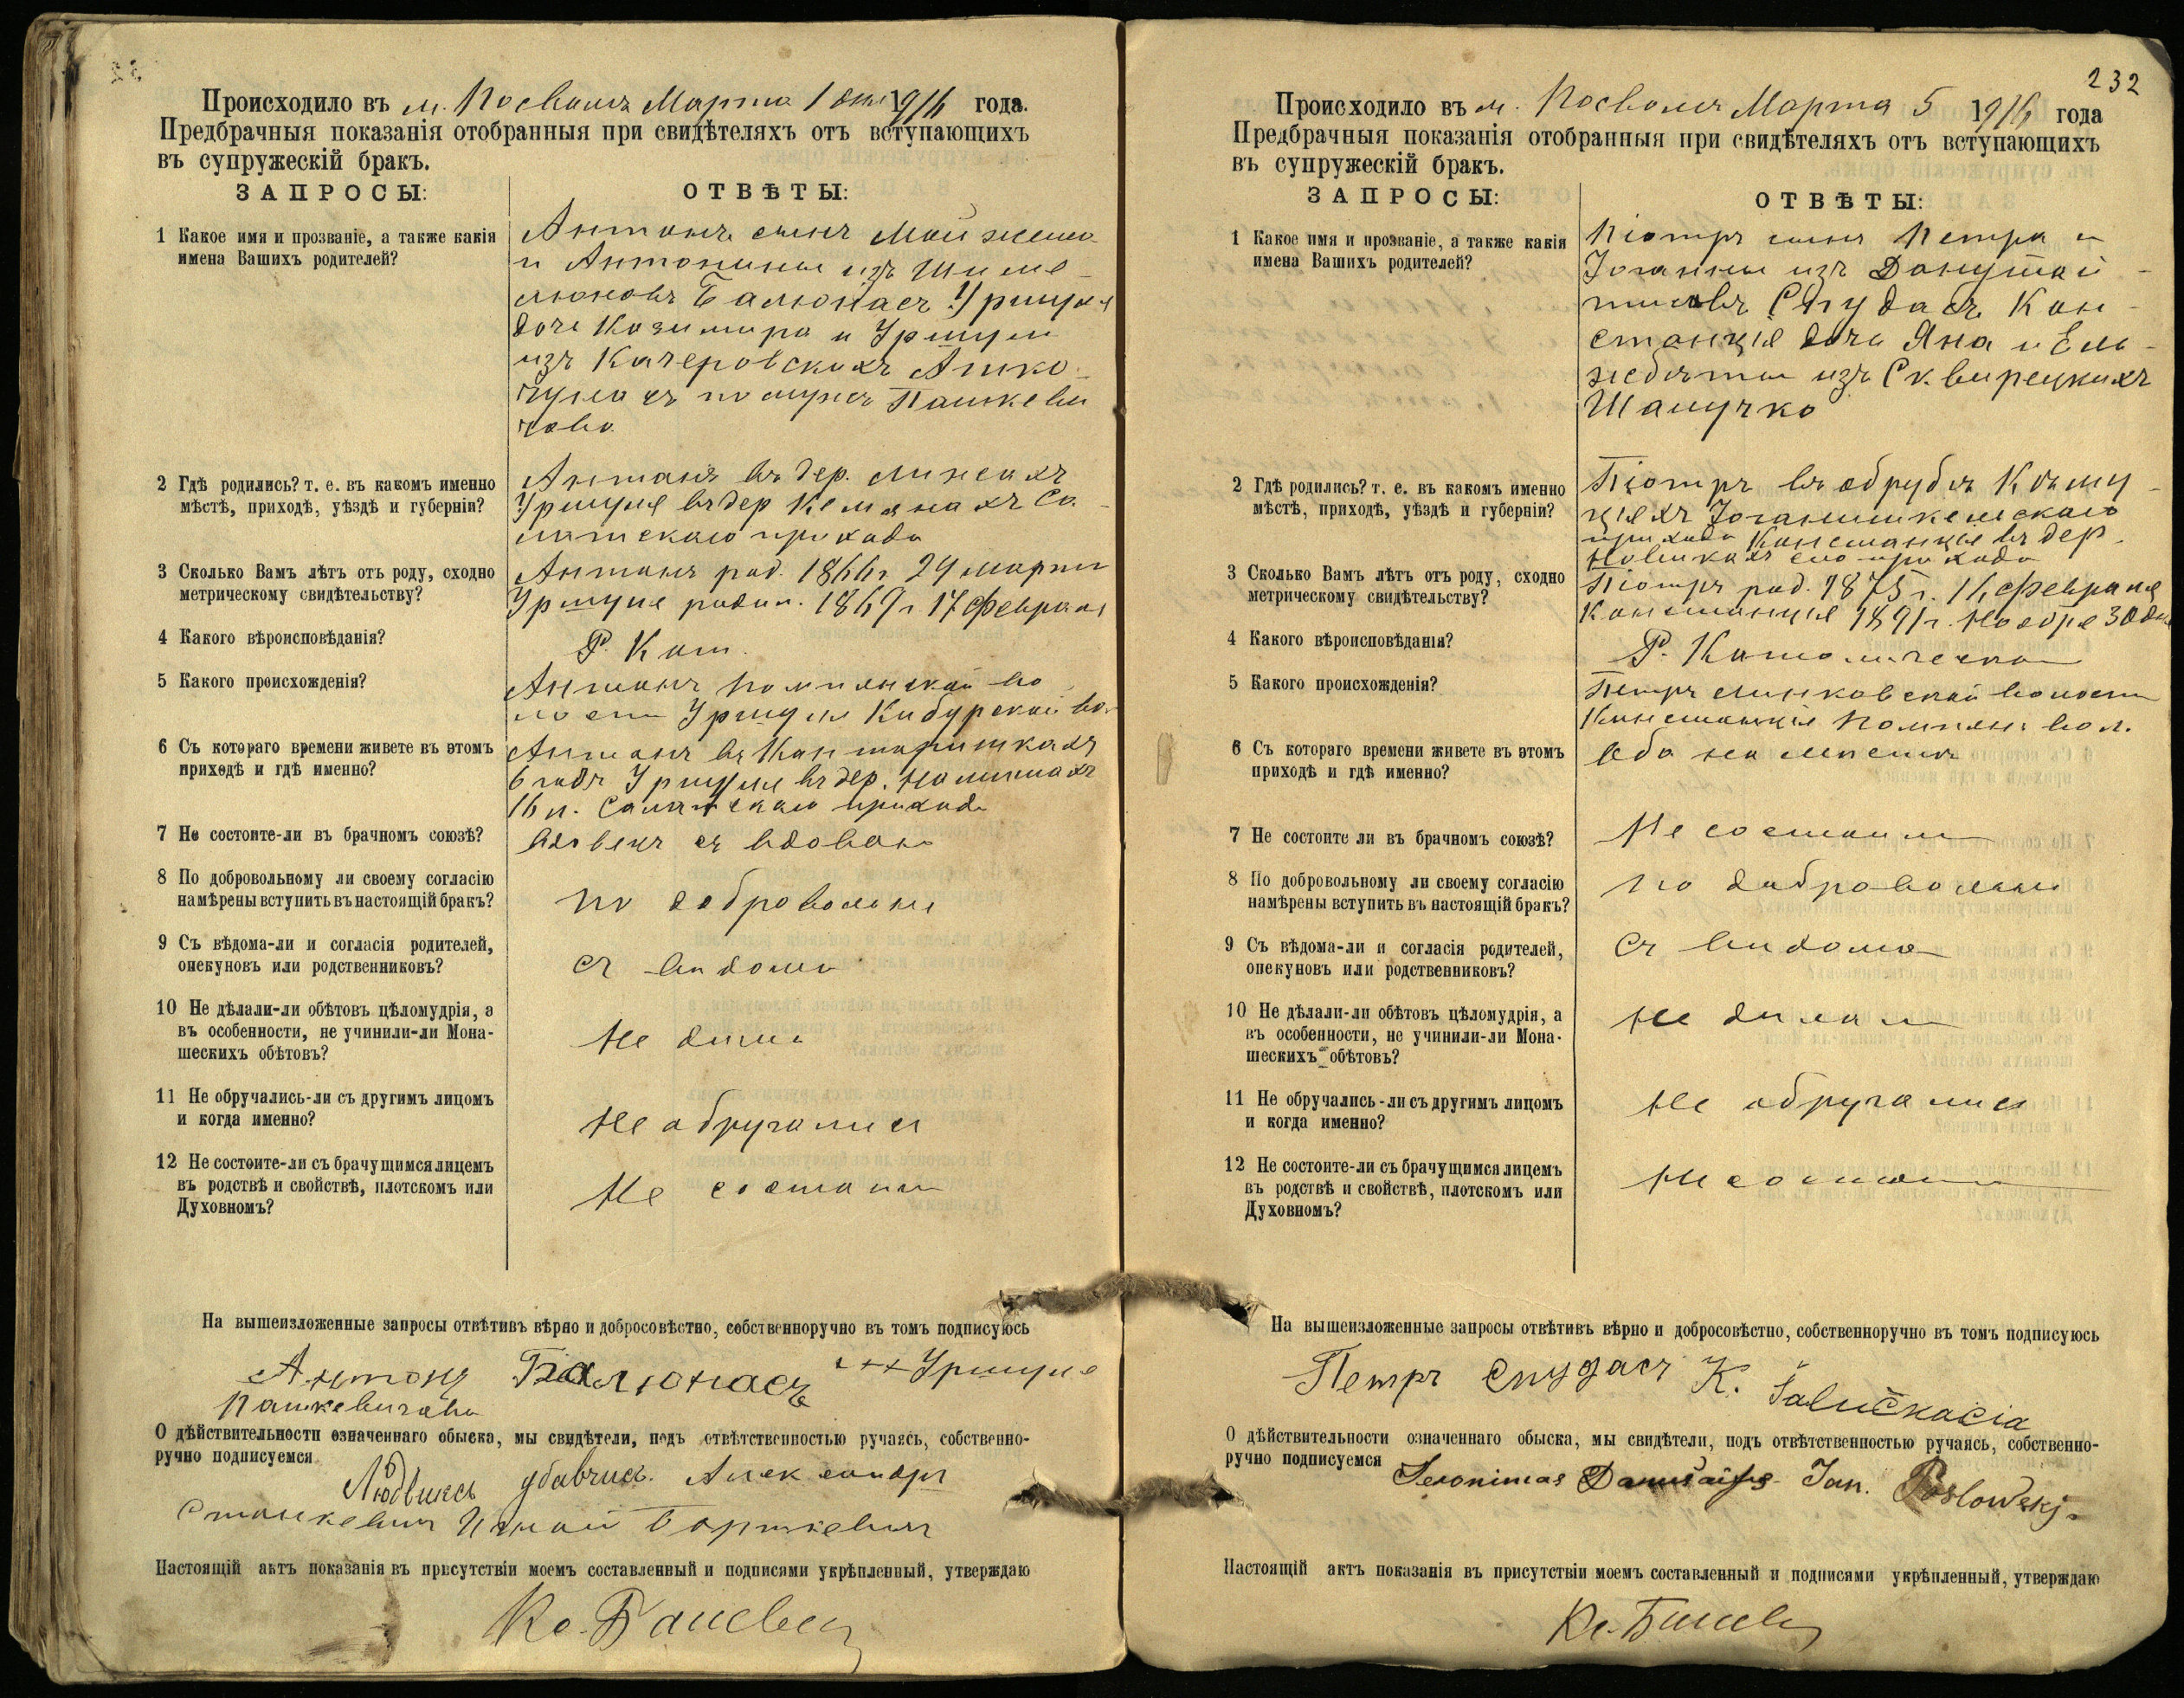 Происходило въ м. Посволѣ Марта 1 дня 1916 года.
Предбрачныя показанія отобранныя при свидѣтеляхъ отъ вступающихъ
въ супружескій бракъ.
ЗАПРОСЫ:
ОТВѢТЫ:
1 Какое имя и прозваніе, а также какія
имена Вашихъ родителей?
Антонъ сынъ
и Антонины изъ Шиме-
люновъ Балюнасъ Уршуля
дочь Казимира и Уршули
изъ Качеровскихъ Ашко-
по мужѣ Пашкеви
чова
2 Гдѣ родились? т. е. въ какомъ именно
мѣстѣ, приходѣ, уѣздѣ и губерніи?
Антонъ въ дер.
Уршуля въ дер Са-
латскаго прихода
3 Сколько Вамъ лѣтъ отъ роду, сходно
метрическому свидѣтельству?
Антонъ род. 1866 г. 29 марта
Уршуля родил. 1869 г 17 февраля
4 Какого вѣроисповѣданія?
Р. Кат.
5 Какого происхожденія?
Антонъ Помпянской во
лости Уршуля Кибурской во
6 Съ котораго времени живете въ этомъ
приходѣ и гдѣ именно?
Антонъ въ
6 годъ Уршуля въ дер.
16 л. Салатскаго прихода
7 Не состоите-ли въ брачномъ союзѣ?
вдовецъ съ вдовою
8 По добровольному ли своему согласію
намѣрены вступить въ настоящій бракъ?
по добровольни
9 Съ вѣдома-ли и согласія родителей,
опекуновъ или родственниковъ?
съ видома
10 Не дѣлали-ли обѣтовъ цѣломудрія, а
въ особенности, не учинили-ли Мона-
шескихъ обѣтовъ?
не
11 Не обручались-ли съ другимъ лицомъ
и когда именно?
не обручались
12 Не состоите-ли съ брачущимся лицемъ
въ родствѣ и свойствѣ, плотскомъ или
Духовномъ?
Не состоим
На вышеизложенные запросы отвѣтивъ вѣрно и добросовѣстно, собственноручно въ томъ подписуюсь
Антонъ Балюнасъ +++ Уршуля
Пашкевичова
О дѣйствительности означеннаго обыска, мы свидѣтели, подъ отвѣтственностью ручаясь, собственно-
ручно подписуемся
Людвикъ Александръ
Станкевич Игнатъ Борткевич
Настоящій актъ показанія въ присутствіи моемъ составленный и подписами укрѣпленный, утверждаю
232
Происходило въ м. Посволѣ Марта 5 1916 года
Предбрачныя показанія отобранныя при свидѣтеляхъ отъ вступающихъ
въ супружескій бракъ.
ЗАПРОСЫ:
ОТВѢТЫ:
1 Какое имя и прозваніе, а также какія
имена Вашихъ родителей?
Піотръ сынъ Петра и
Іоганны изъ Данушай-
тисовъ Спудасъ Кон-
станція дочь Яна и Ель-
жбѣты изъ Сквирецкихъ
Шалучко
2 Гдѣ родились? т. е. въ какомъ именно
мѣстѣ, приходѣ, уѣздѣ и губерніи?
Піотръ въ обрубѣ
Іоганишкельскаго
прихода Констанція въ дер.
прихода
3 Сколько Вамъ лѣтъ отъ роду, сходно
метрическому свидѣтельству?
Піотръ род. 1875 г. 16 февраля
Констанція 1891 г. Ноября 30 дня
4 Какого вѣроисповѣданія?
Р. Католическа
5 Какого происхожденія?
Петръ Линковской волости
Констанція Помпян. вол.
6 Съ котораго времени живете въ этомъ
приходѣ и гдѣ именно?
оба на мѣстѣ
7 Не состоите ли въ брачномъ союзѣ?
Не состоим
8 По добровольному ли своему согласію
намѣрены вступить въ настоящій бракъ?
по добровольни
9 Съ вѣдома-ли и согласія родителей,
опекуновъ или родственниковъ?
Съ видома
10 Не дѣлали-ли обѣтовъ цѣломудрія, а
въ особенности, не учинили-ли Мона-
шескихъ обѣтовъ?
не дилали
11 Не обручались-ли съ другимъ лицомъ
и когда именно?
не обручались
12 Не состоите-ли съ брачущимся лицемъ
въ родствѣ и свойствѣ, плотскомъ или
Духовномъ?
Не состоим
На вышеизложенные запросы отвѣтивъ вѣрно и добросовѣстно, собственноручно въ томъ подписуюсь
Петръ Спудасъ K. Šalučkačia
О дѣйствительности означеннаго обыска, мы свидѣтели, подъ отвѣтственностью ручаясь, собственно-
ручно подписуемся Jeronimas Danušaitys Jan. Poslowskj.
Настоящій актъ показанія въ присутствіи моемъ составленный и подписами укрѣпленный, утверждаю